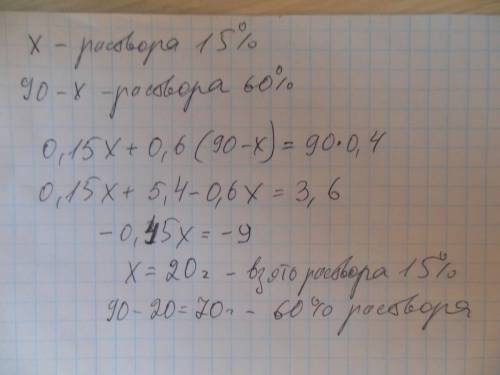 x - раствора 15%
90-x - раствора 60%
0,15x + 0,6(90-x) = 90·0,4
0,15x + 5,4-0,6x = 3,6
-0,45x = -9
x = 20г - взято раствора 15%
90-20=70г - 60% раствора